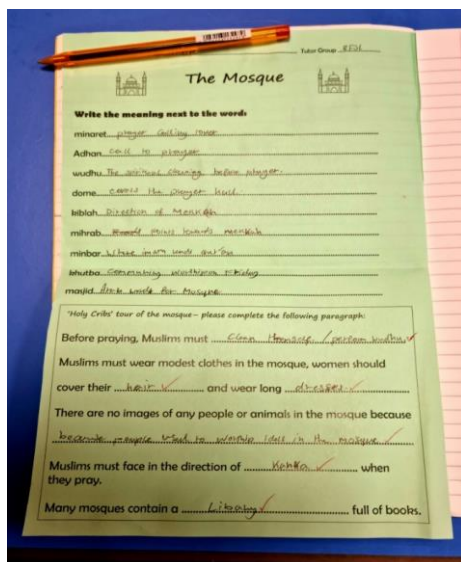 Tutor Group
The Mosque
Write the meaning next to the word:
minaret prayer calling tower
Adhan call to prayer
wudhu The spiritual cleaning before prayer.
dome covers the prayer hall
kiblah Direction of
mihrab points towards
minbar where imam
khutba worship on Friday
masjid Arab word for Mosque
'Holy Cribs' tour of the mosque – please complete the following paragraph:
Before praying, Muslims must Clean / perform wudhu
Muslims must wear modest clothes in the mosque, women should
cover their hair and wear long dresses
There are no images of any people or animals in the mosque because
because people used to worship idols in the mosque
Muslims must face in the direction of when
they pray.
Many mosques contain a Library full of books.